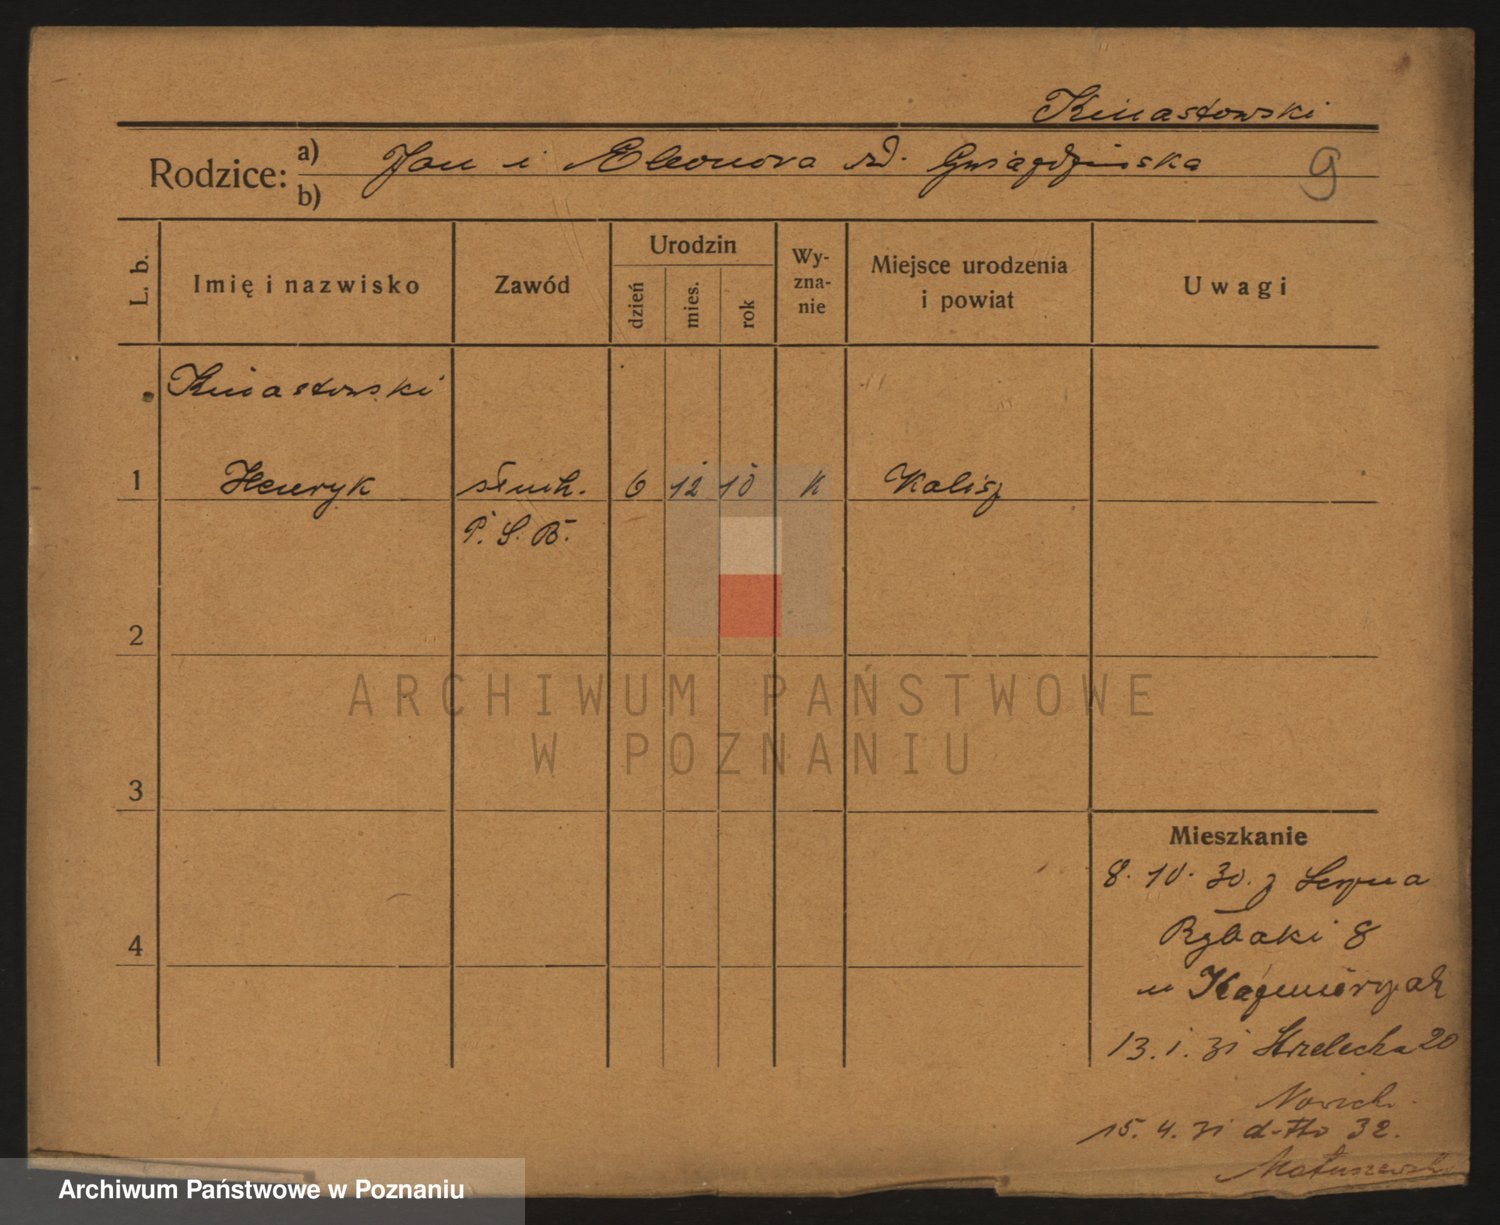 Kinastowski
Rodzice: a) Jan i Eleonora rd. Gwiaździńska 9
b)
L. b. Imię i nazwisko Zawód Urodzin dzień mies. rok Wy-zna-nie Miejsce urodzenia i powiat Uwagi
Kinastowski
1 Henryk słuch. 6 12 10 k Kalisz
P. S. B.
2
ARCHIWUM PAŃSTWOWE
W POZNANIU
3
Mieszkanie
8. 10. 30. z
Rybaki 8
4
u Kaźmierczak
13. 1. 31 Strzelecka 20
15. 4. 31 d-tto 32.
Matuszewski
Archiwum Państwowe w Poznaniu